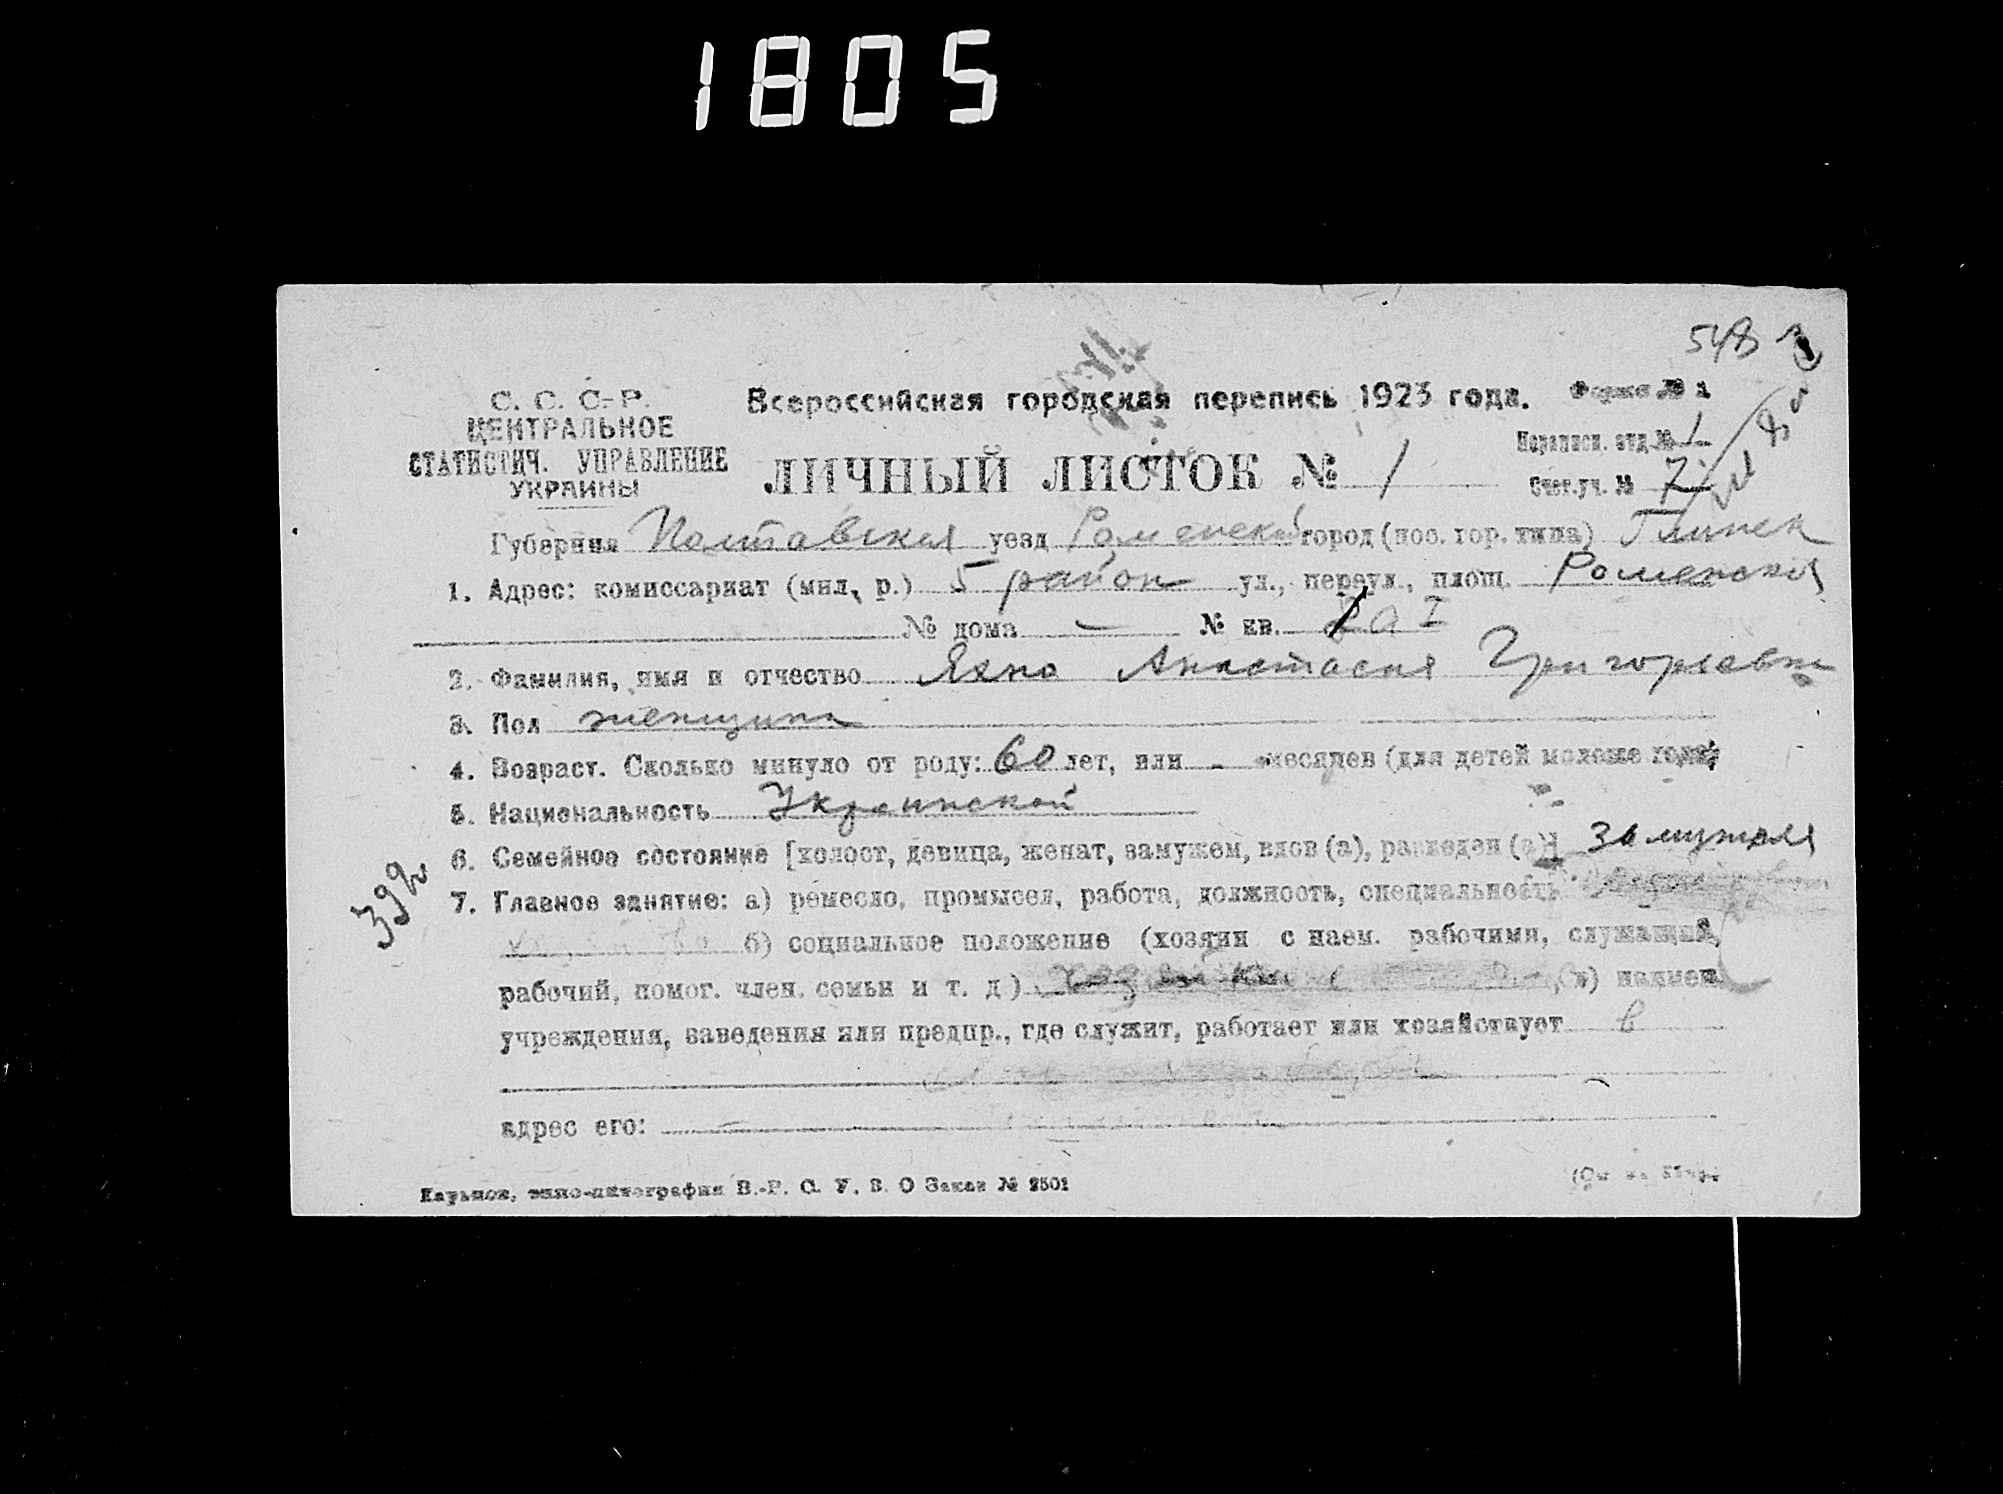 1805
548
С. С. С.-Р.
ЦЕНТРАЛЬНОЕ
СТАТИСТИЧ. УПРАВЛЕНИЕ
УКРАИНЫ
Всероссийская городская перепись 1923 года.
Форма № 1
ЛИЧНЫЙ ЛИСТОК № 1
Переписн. отд. № 1
Счет. уч. № 7
Губерния Полтавская уезд Роменский город (пос. гор. типа) Глинск
1. Адрес: комиссариат (мил, р.) 5 район ул., переул., площ. Роменская
№ дома — № кв.
2. Фамилия, имя и отчество Яхно Анастасия Григорьевн
3. Пол женщина
4. Возраст. Сколько минуло от роду: 60 лет, или - месяцев (для детей моложе года)
5. Национальность Украинской
6. Семейное состояние [холост, девица, женат, замужем, вдов (а), разведен (а)] замужем
7. Главное занятие: а) ремесло, промысел, работа, должность, специальность
б) социальное положение (хозяин с наем. рабочими, служащий,
рабочий, помог. член. семьи и т. д)
в) наимен.
учреждения, заведения или предпр., где служит, работает или хозяйствует в
адрес его: —
Харьков, типо-литография В.-Р. С. У. В. О Заказ № 2501